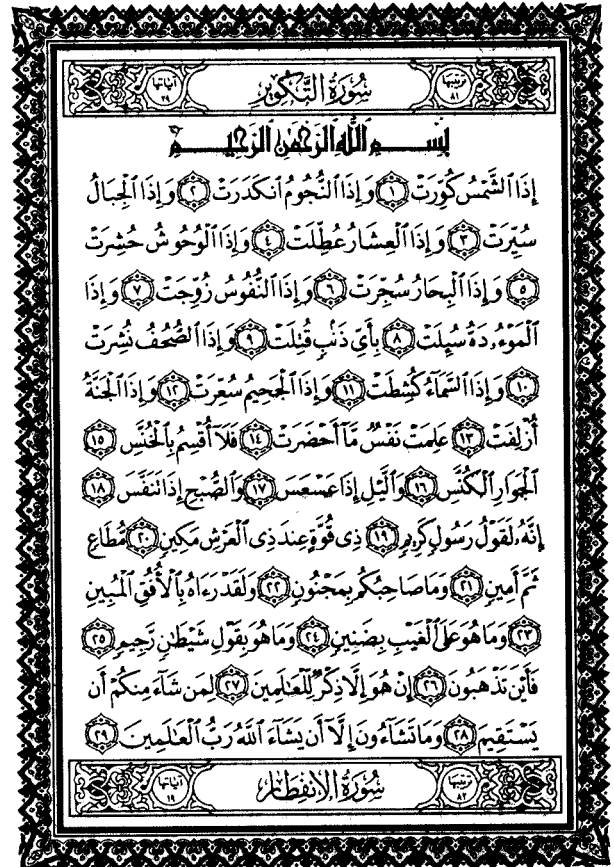 ترتيبها ٨١ سُورَةُ التَّكْوِيرِ آياتها ٢٩
بِسْمِ اللَّهِ الرَّحْمَٰنِ الرَّحِيمِ
إِذَا الشَّمْسُ كُوِّرَتْ ١ وَإِذَا النُّجُومُ انكَدَرَتْ ٢ وَإِذَا الْجِبَالُ
سُيِّرَتْ ٣ وَإِذَا الْعِشَارُ عُطِّلَتْ ٤ وَإِذَا الْوُحُوشُ حُشِرَتْ
٥ وَإِذَا الْبِحَارُ سُجِّرَتْ ٦ وَإِذَا النُّفُوسُ زُوِّجَتْ ٧ وَإِذَا
الْمَوْءُۥدَةُ سُئِلَتْ ٨ بِأَيِّ ذَنۢبٍ قُتِلَتْ ٩ وَإِذَا الصُّحُفُ نُشِرَتْ
١٠ وَإِذَا السَّمَآءُ كُشِطَتْ ١١ وَإِذَا الْجَحِيمُ سُعِّرَتْ ١٢ وَإِذَا الْجَنَّةُ
أُزْلِفَتْ ١٣ عَلِمَتْ نَفْسٌ مَّآ أَحْضَرَتْ ١٤ فَلَآ أُقْسِمُ بِالْخُنَّسِ ١٥
الْجَوَارِ الْكُنَّسِ ١٦ وَالَّيْلِ إِذَا عَسْعَسَ ١٧ وَالصُّبْحِ إِذَا تَنَفَّسَ ١٨
إِنَّهُۥ لَقَوْلُ رَسُولٍ كَرِيمٍ ١٩ ذِي قُوَّةٍ عِندَ ذِي الْعَرْشِ مَكِينٍ ٢٠ مُّطَاعٍ
ثَمَّ أَمِينٍ ٢١ وَمَا صَاحِبُكُم بِمَجْنُونٍ ٢٢ وَلَقَدْ رَءَاهُ بِالْأُفُقِ الْمُبِينِ
٢٣ وَمَا هُوَ عَلَى الْغَيْبِ بِضَنِينٍ ٢٤ وَمَا هُوَ بِقَوْلِ شَيْطَٰنٍ رَّجِيمٍ ٢٥
فَأَيْنَ تَذْهَبُونَ ٢٦ إِنْ هُوَ إِلَّا ذِكْرٌ لِّلْعَٰلَمِينَ ٢٧ لِمَن شَآءَ مِنكُمْ أَن
يَسْتَقِيمَ ٢٨ وَمَا تَشَآءُونَ إِلَّآ أَن يَشَآءَ اللَّهُ رَبُّ الْعَٰلَمِينَ ٢٩
ترتيبها ٨٢ سُورَةُ الْإِنفِطَارِ آياتها ١٩